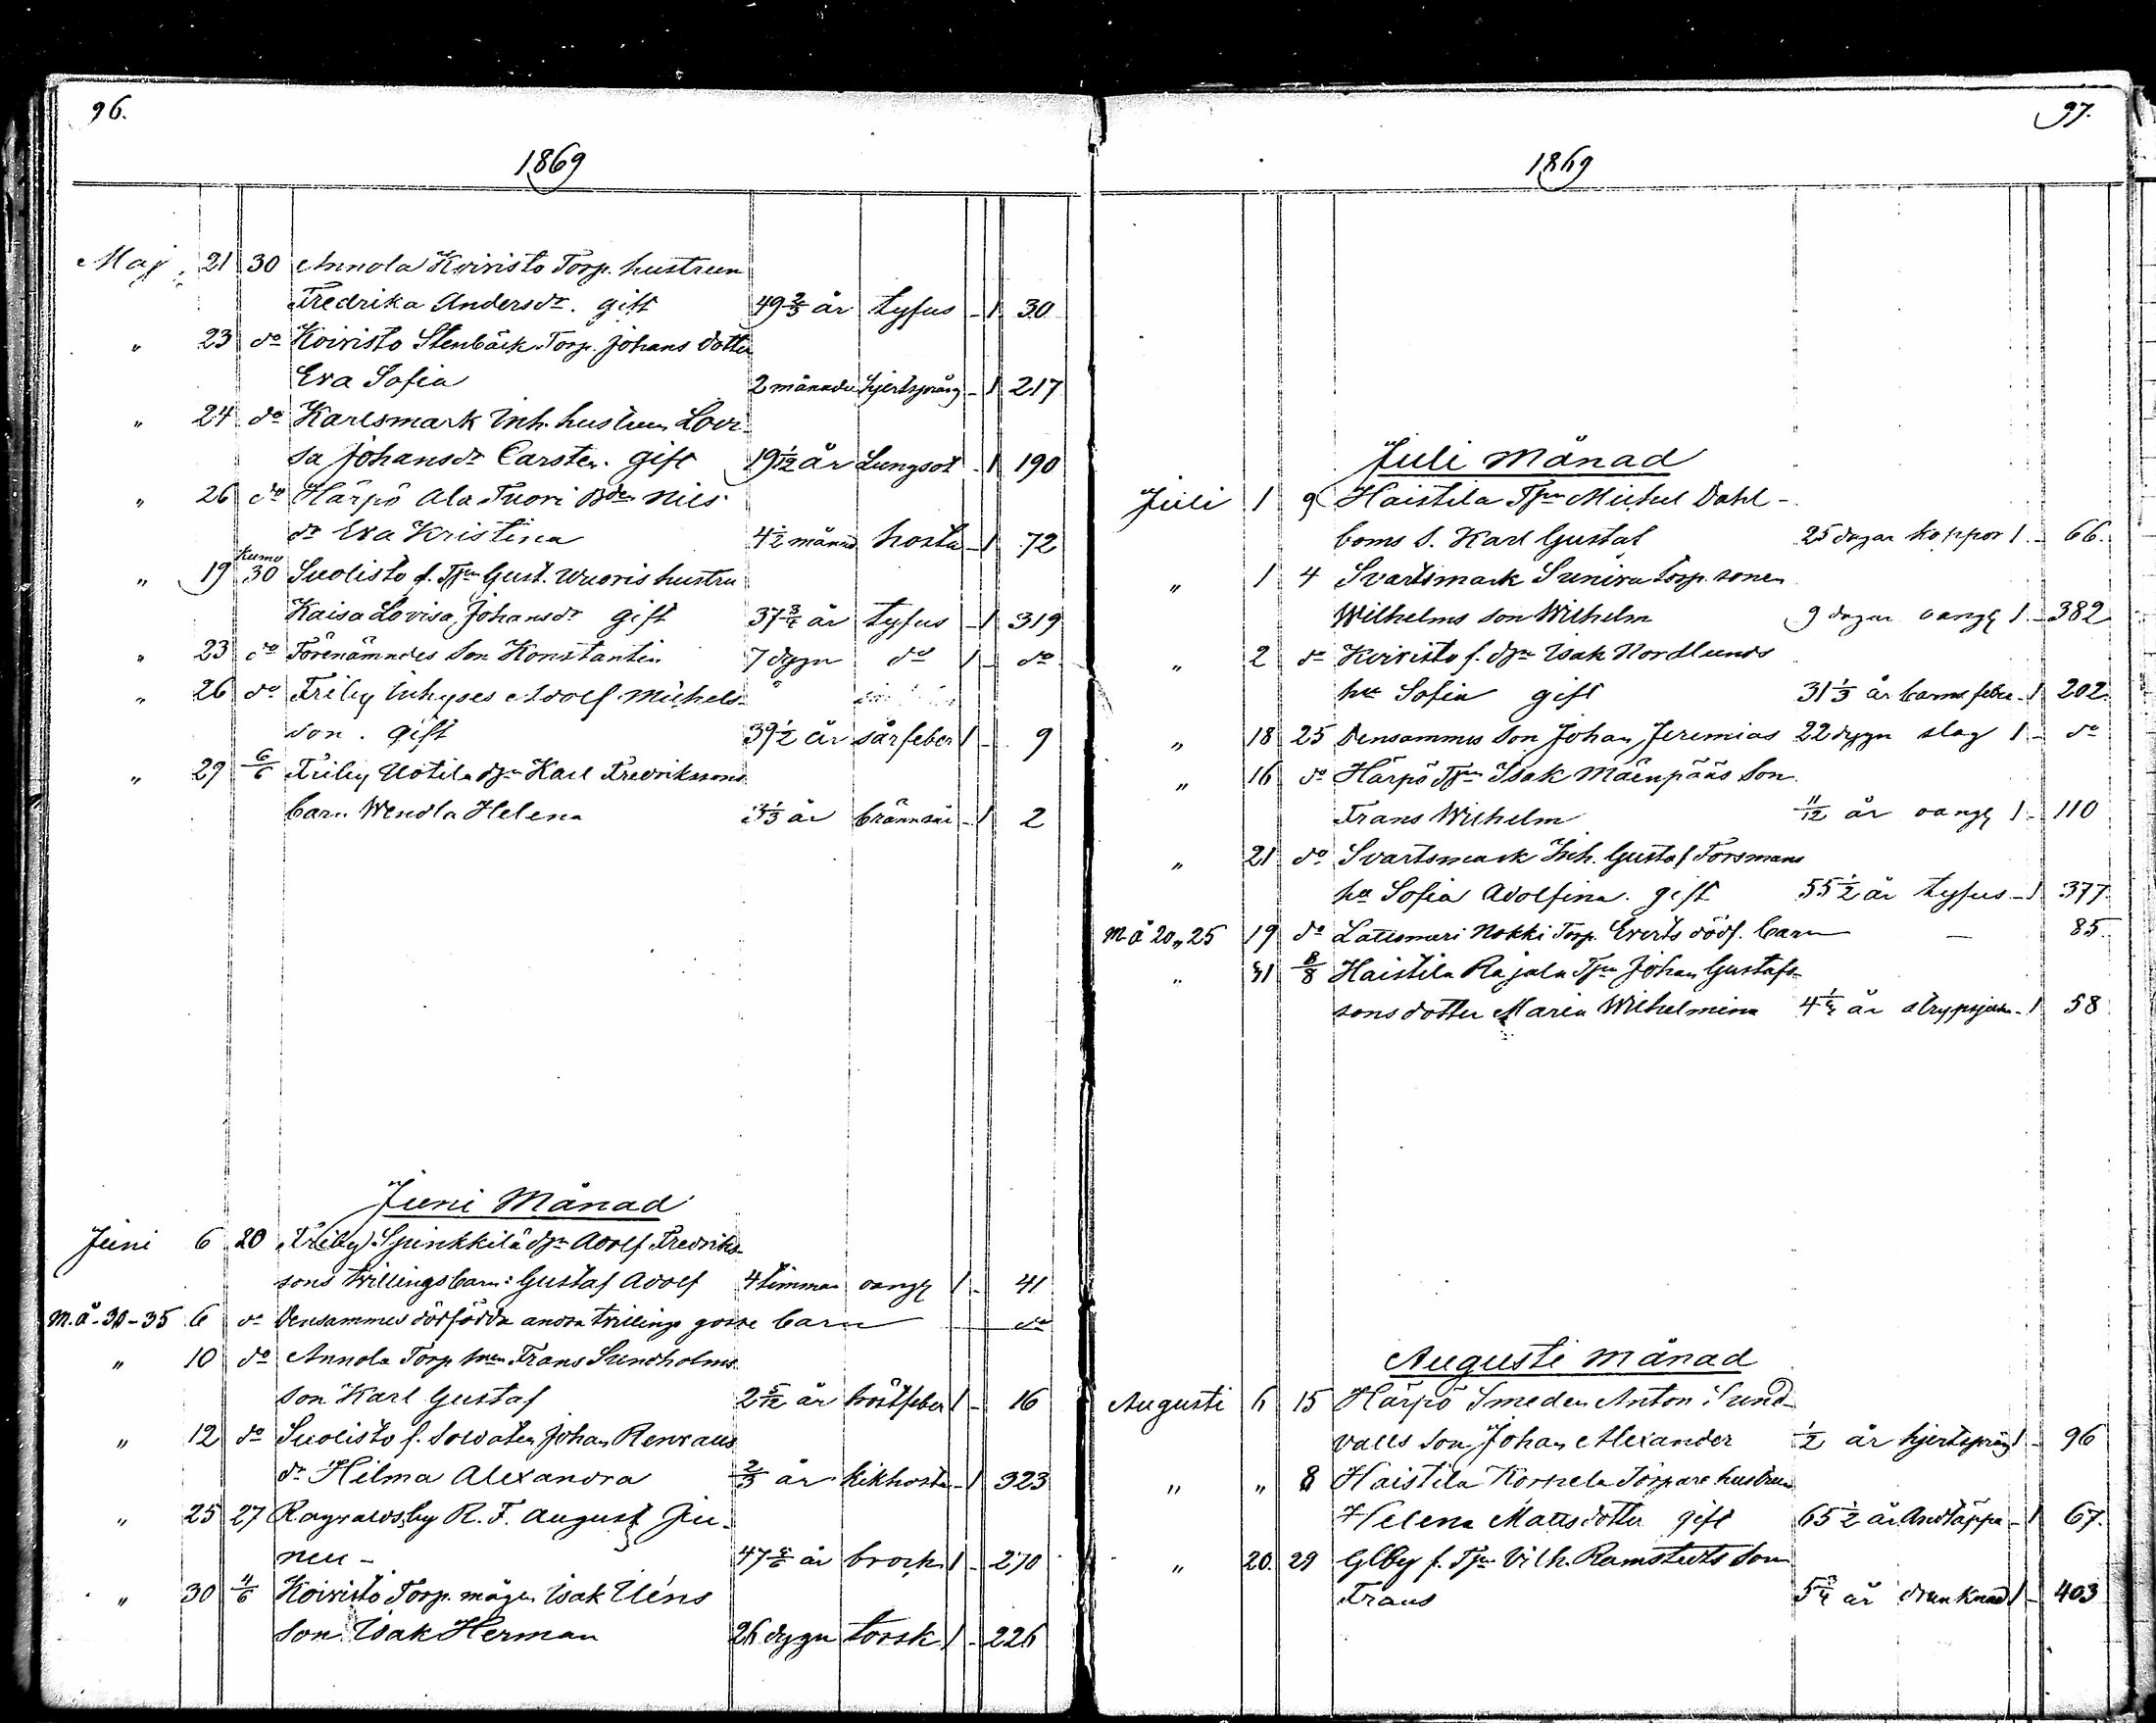 96.
1869
Maj 21 30 Annola Koivisto Torp. hustrun
Fredrika Andersdr. gift 49 2/3 år tyfus - 1 30
" 23 do Koivisto Stenbäck Torp. Johans dotter
Eva Sofia 2 månader hjertsprång - 1 217
" 24 do Karlsmark Inh. hustrun Lovi-
sa Johansdr Carsten. gift 19 1/12 år Lungsot - 1 190
" 26 do Härpö Ala Tuori Bden Nils
dr Eva Kristina 4 1/2 månad hosta - 1 72
kumo
" 19 30 Suolisto f. Tjn Gust. Wuoris hustru
Kaisa Lovisa Johansdr gift 37 3/4 år tyfus - 1 319
" 23 do Förenämndes Son Konstantin 7 dygn do 1 - do
" 26 do Friby Inhyses Adolf Michels-
son. gift 39 1/2 år sårfeber 1 - 9
" 29 6/6 Friby Uotila dgn Karl Fredrikssons
barn Wendla Helena 3 1/3 år brännsår - 1 2
Juni Månad
Juni 6 20 Friby Spinkkilä dgn Adolf Fredriks-
sons trillingsbarn: Gustaf Adolf 4 timmar oangf 1 - 41
M. å. 30-35 6 do Densammes dödfödda andra trillings gosse barn do
" 10 do Annola Torp Frans Sundholms
son Karl Gustaf 2 5/12 år bröstfeber 1 - 16
" 12 do Suolisto f. Soldaten Johan Renvalls
dr Hilma Alexandra 2/3 år kikhosta - 1 323
" 25 27 Ragvaldsby R. F. August Ju-
neu - 47 år brock 1 - 270
" 30 4/6 Koivisto Torp. mågen Isak Uléns
Son Isak Herman 26 dygn torsk 1 - 226
97.
1869
Juli Månad
Juli 1 9 Haistila Tjn Michel Dahl-
boms S. Karl Gustaf 25 dagar koppor 1 - 66.
" 1 4 Svartsmark Suniva Torp. sonen
Wilhelms son Wilhelm 9 dagar oangf 1 - 382
" 2 do Koivisto f. dgn Isak Nordlunds
hu Sofia gift 31 1/3 år barnsfeber - 1 202.
" 18 25 Densammes Son Johan Jeremias 22 dygn slag 1 - do
" 16 do Härpö Tjn Isak Mäenpääs Son
Frans Wilhelm 11/12 år oangf 1 - 110
" 21 do Svartsmark Inh. Gustaf Forsmans
hu Sofia Adolfina. gift 55 1/2 år tyfus - 1 377.
M å 20 " 25 19 do Lattomeri Nokki Torp. Everts dödf. barn — 85.
" 31 8/8 Haistila Rajala Tjn Johan Gustafs-
sons dotter Maria Wilhelmina 4 1/4 år strypsjuka - 1 58
Augusti månad
Augusti 6 15 Härpö Smeden Anton Sund-
valls Son Johan Alexander 1/2 år hjertsprång 1 - 96
" " 8 Haistila Korpela Torpare hustrun
Helena Mattsdotter gift 65 1/2 år Andtäppa - 1 67.
" 20. 29 Glby f. Tjn Vilh. Ramstedts Son
Frans 5 3/4 år drunknad 1 - 403